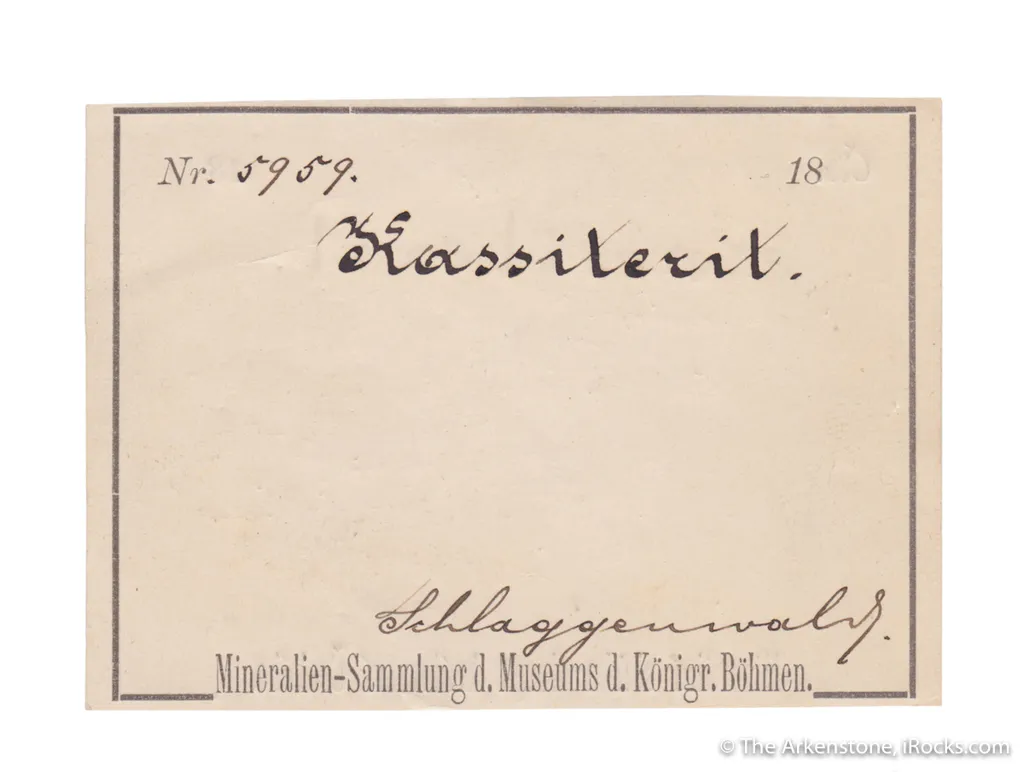 Nr. 5959. 18
Kassiterit.
Schlaggenwald.
Mineralien-Sammlung d. Museums d. Königr. Böhmen.
© The Arkenstone, iRocks.com